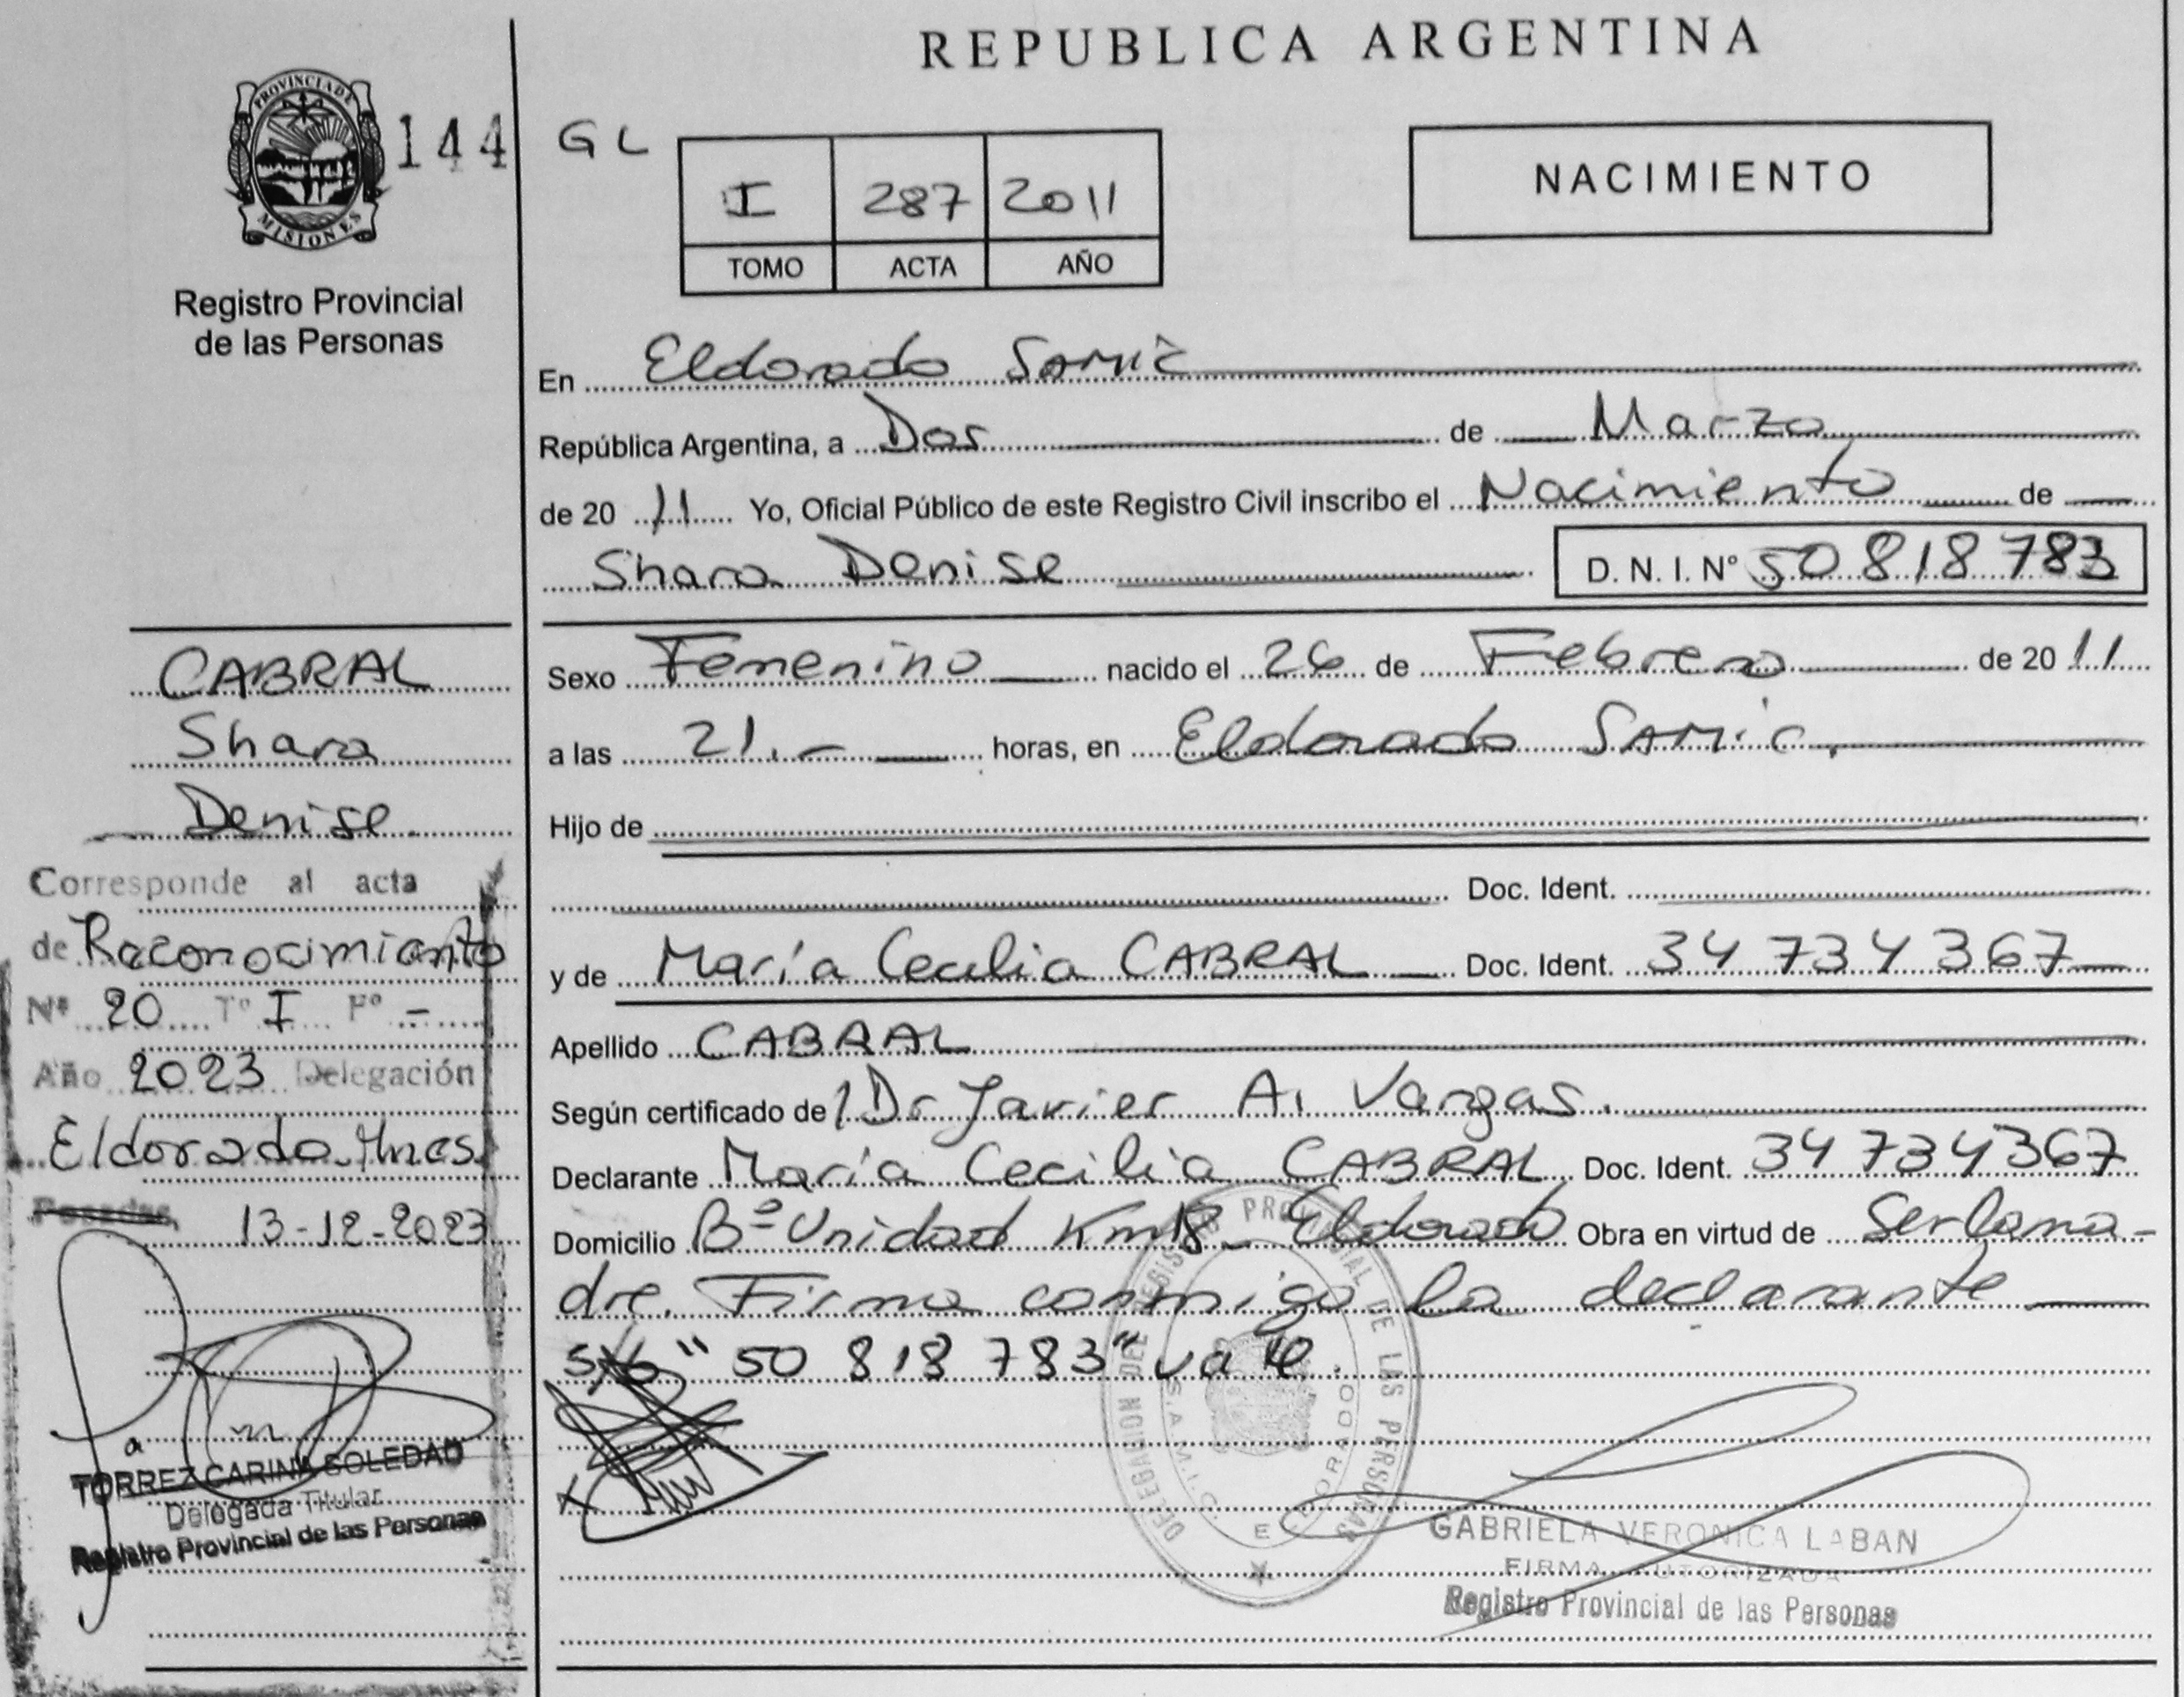 REPUBLICA ARGENTINA
PROVINCIA DE
MISIONES
144
Registro Provincial
de las Personas
GL
I 287 2011
TOMO ACTA AÑO
NACIMIENTO
En Eldorado SAMIC
República Argentina, a Dos de Marzo
de 20 11 Yo, Oficial Público de este Registro Civil inscribo el Nacimiento de
Shara Denise D. N. I. N° 50 818 783
Sexo Femenino nacido el 26 de Febrero de 20 11
a las 21.- horas, en Eldorado SAMIC.
Hijo de
Doc. Ident.
y de María Cecilia CABRAL Doc. Ident. 34 734 367
Apellido CABRAL
Según certificado de Dr Javier A. Vargas.
Declarante María Cecilia CABRAL Doc. Ident. 34 734 367
Domicilio Bº Unidad Km18- Eldorado Obra en virtud de Ser la ma-
dre. Firma conmigo la declarante
s/b "50 818 783" vale.
CABRAL
Shara
Denise
Corresponde al acta
de Reconocimiento
Nº 20 Tº I Fº -
Año 2023 Delegación
Eldorado Mnes
Posadas, 13-12-2023
TORREZ CARINA SOLEDAD
Delegada Titular
Registro Provincial de las Personas
DELEGACION DEL REGISTRO PROVINCIAL DE LAS PERSONAS
S.A.M.I.C. ELDORADO
GABRIELA VERONICA LABAN
FIRMA AUTORIZADA
Registro Provincial de las Personas